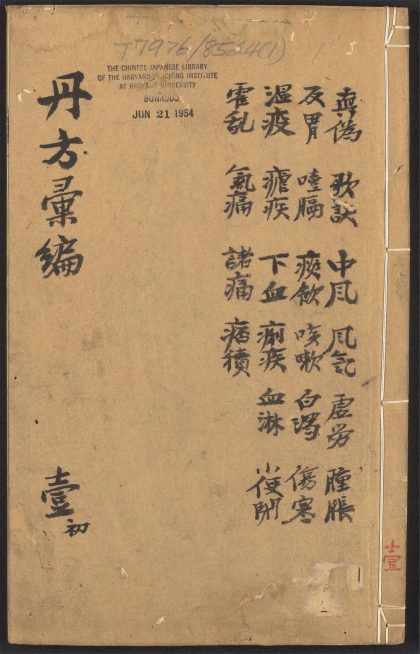 T7976/8524(1)
THE CHINESE-JAPANESE LIBRARY
OF THE HARVARD-YENCHING INSTITUTE
AT HARVARD UNIVERSITY
JUN 21 1954
真偽 歌訣 中風 風氣 虛勞 腫脹
反胃 噎膈 痰飲 咳嗽 白濁 傷寒
溫疫 瘧疾 下血 痢疾 血淋 小便閉
霍乱 氣痛 諸痛 痞積
丹方彙編 壹初
壹